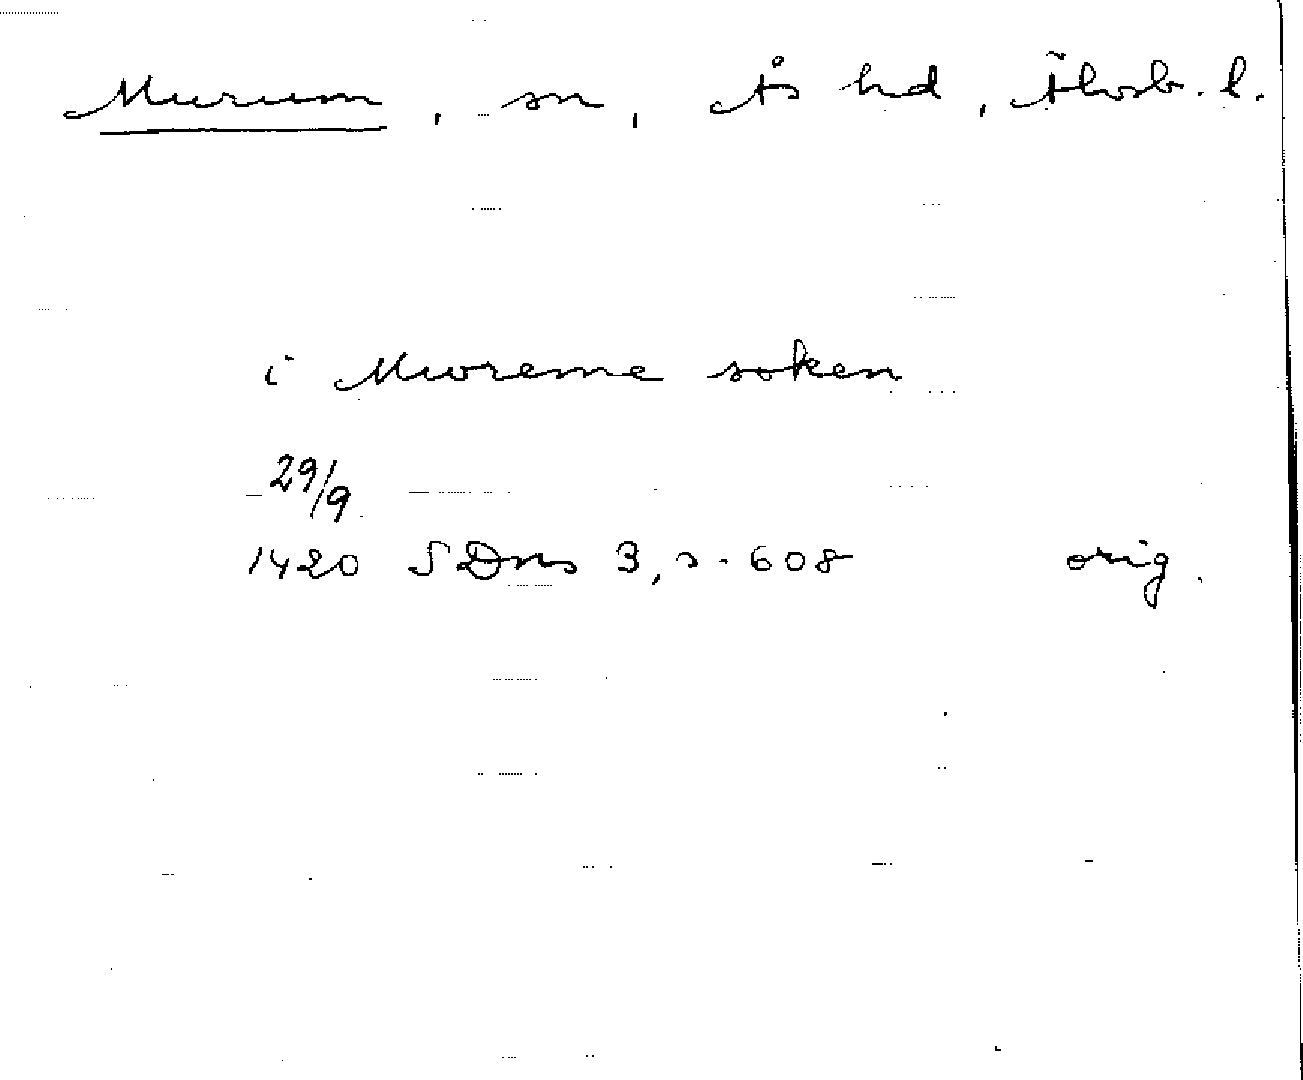 Murum, sn, Ås hd, Älvsb. l.
i Mworeme soken
29/9
1420 SDns 3, s. 608 orig.